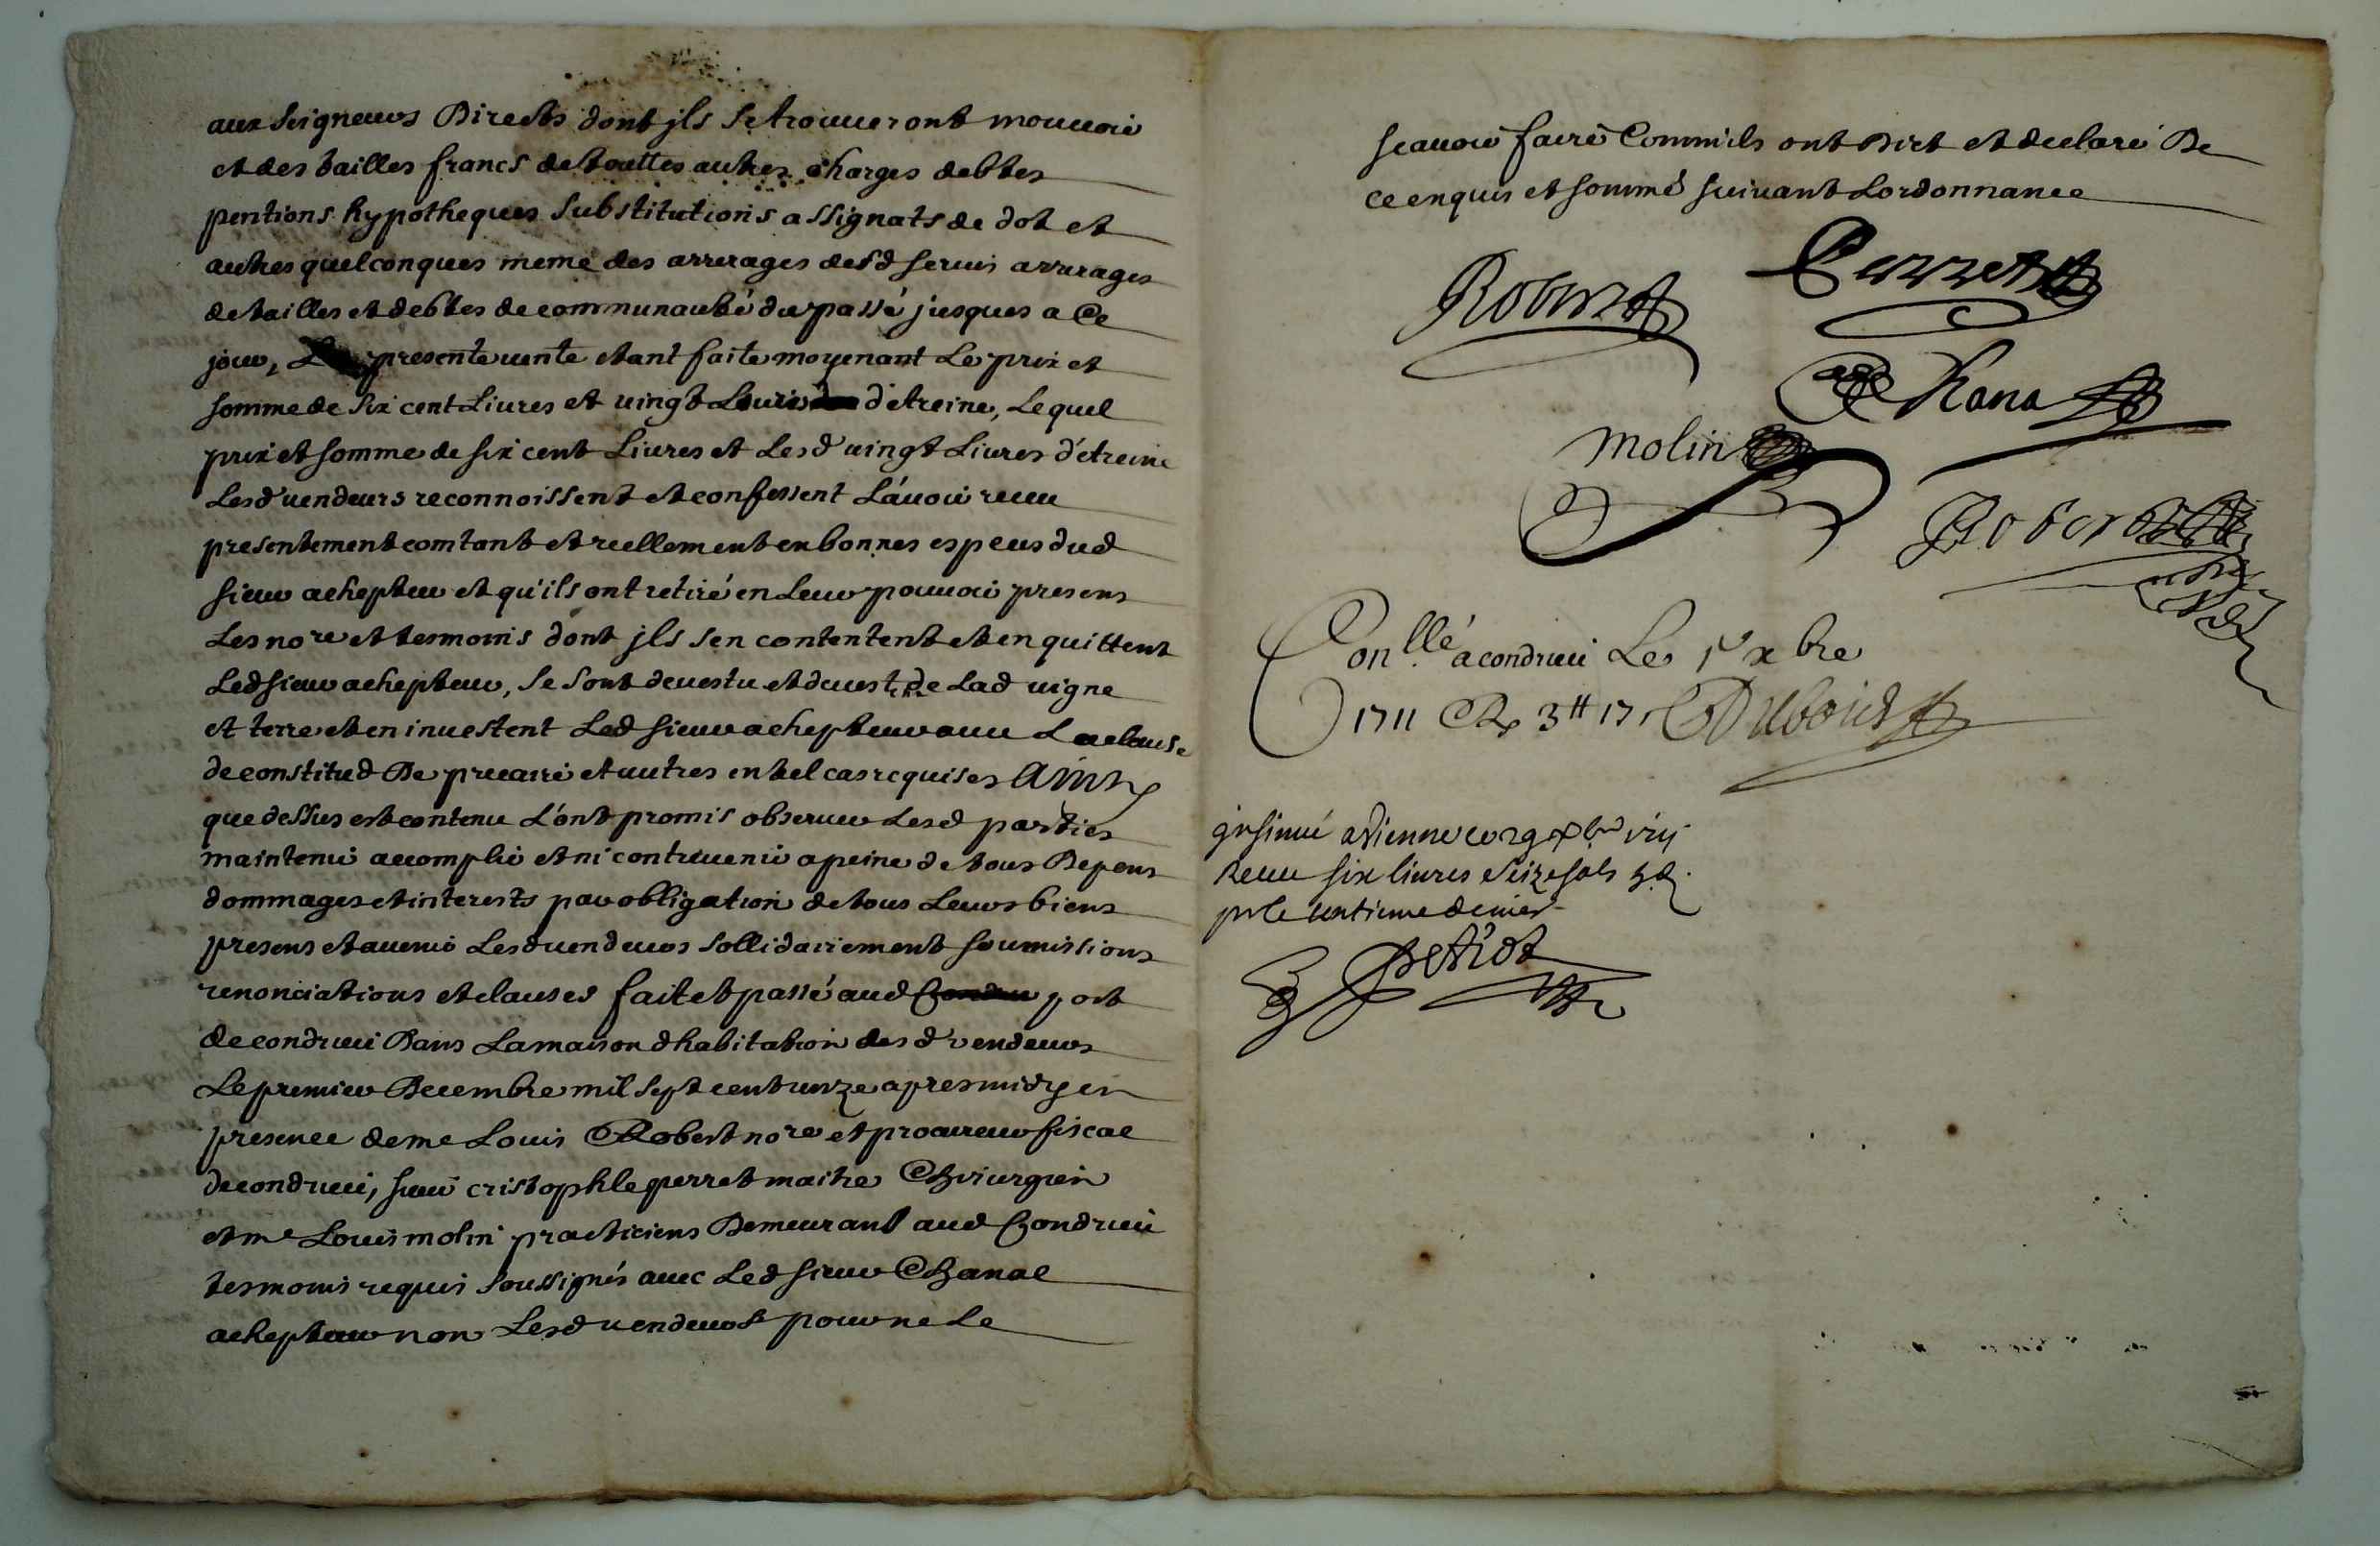 aux seigneurs Directs dont jls se trouueront mouuoir
et des tailles francs de touttes autres charges debtes
pentions hypotheques substitutions assignats de dot et
autres quelconques meme des arrerages desd seruis arrerages
de tailles et debtes de communauté du passé jusques a Ce
jour, La presente uente etant faite moyenant Le prix et
somme de six cent Liures et uingt Liures d'etreine, Lequel
prix et somme de six cent Liures et Lesd uingt Liures d'étreine
Lesd uendeurs reconnoissent et confessent L'auoir receu
presentement comtant et reellement en bonnes especes dud
sieur achepteur et qu'ils ont retiré en Leur pouuoir presens
Les nore et tesmoins dont jls s'en contentent et en quittent
Led sieur achepteur, se sont deuestu et deuest de Lad uigne
et terre et en inuestent Led sieur achepteur auec La clause
de constitud De precaire et autres en tel cas requises Ainsy
que dessus est contenu L'ont promis obseruer Lesd parties
maintenir accomplir et ni contreuenir a peine de tous Depens
dommages et interests par obligation de tous Leurs biens
presens et auenir Lesd uendeurs sollidairement soumissions
renonciations et clauses fait et passé aud Condrieu port
de condrieu Dans La maison dhabitation desd vendeurs
Le premier Decembre mil sept cent unze apres midy en
presence de me Louis Robert nore et procureur fiscal
de condrieu, sieur cristophle perret maitre Chirurgien
et me Louis molin practiciens Demeurant aud Condrieu
tesmoins requis soussignés auec Led sieur Chanal
achepteur non Lesd uendeurs pour ne Le
scauoir faire Comm'ils ont Dict et declaré De
ce enquis et sommé suiuant Lordonnance
Robert Perret
Chana
Molin
Robert
Con.llé a condrieu Le 1er xbre
1711 R 3tt 17s Dubois
jnsinué a Vienne ce 29 xbre
Receu six liures seize sols
pr le centieme denier
Petiot